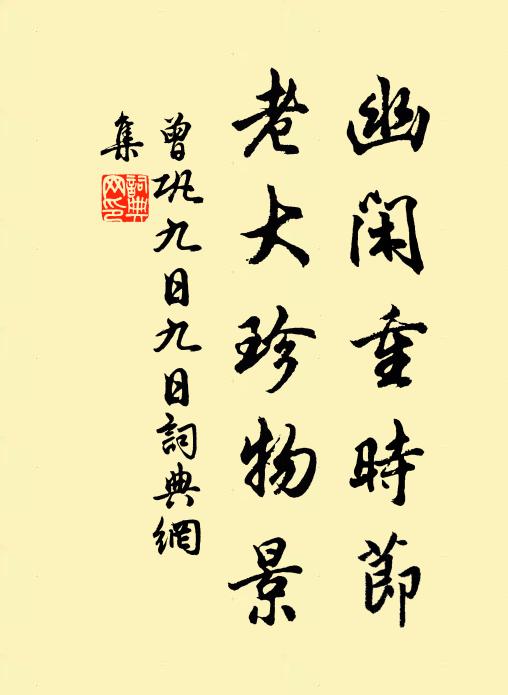 幽閑重時節
老大珍物景
曾鞏九日九日詞典網
集
詞典
网印